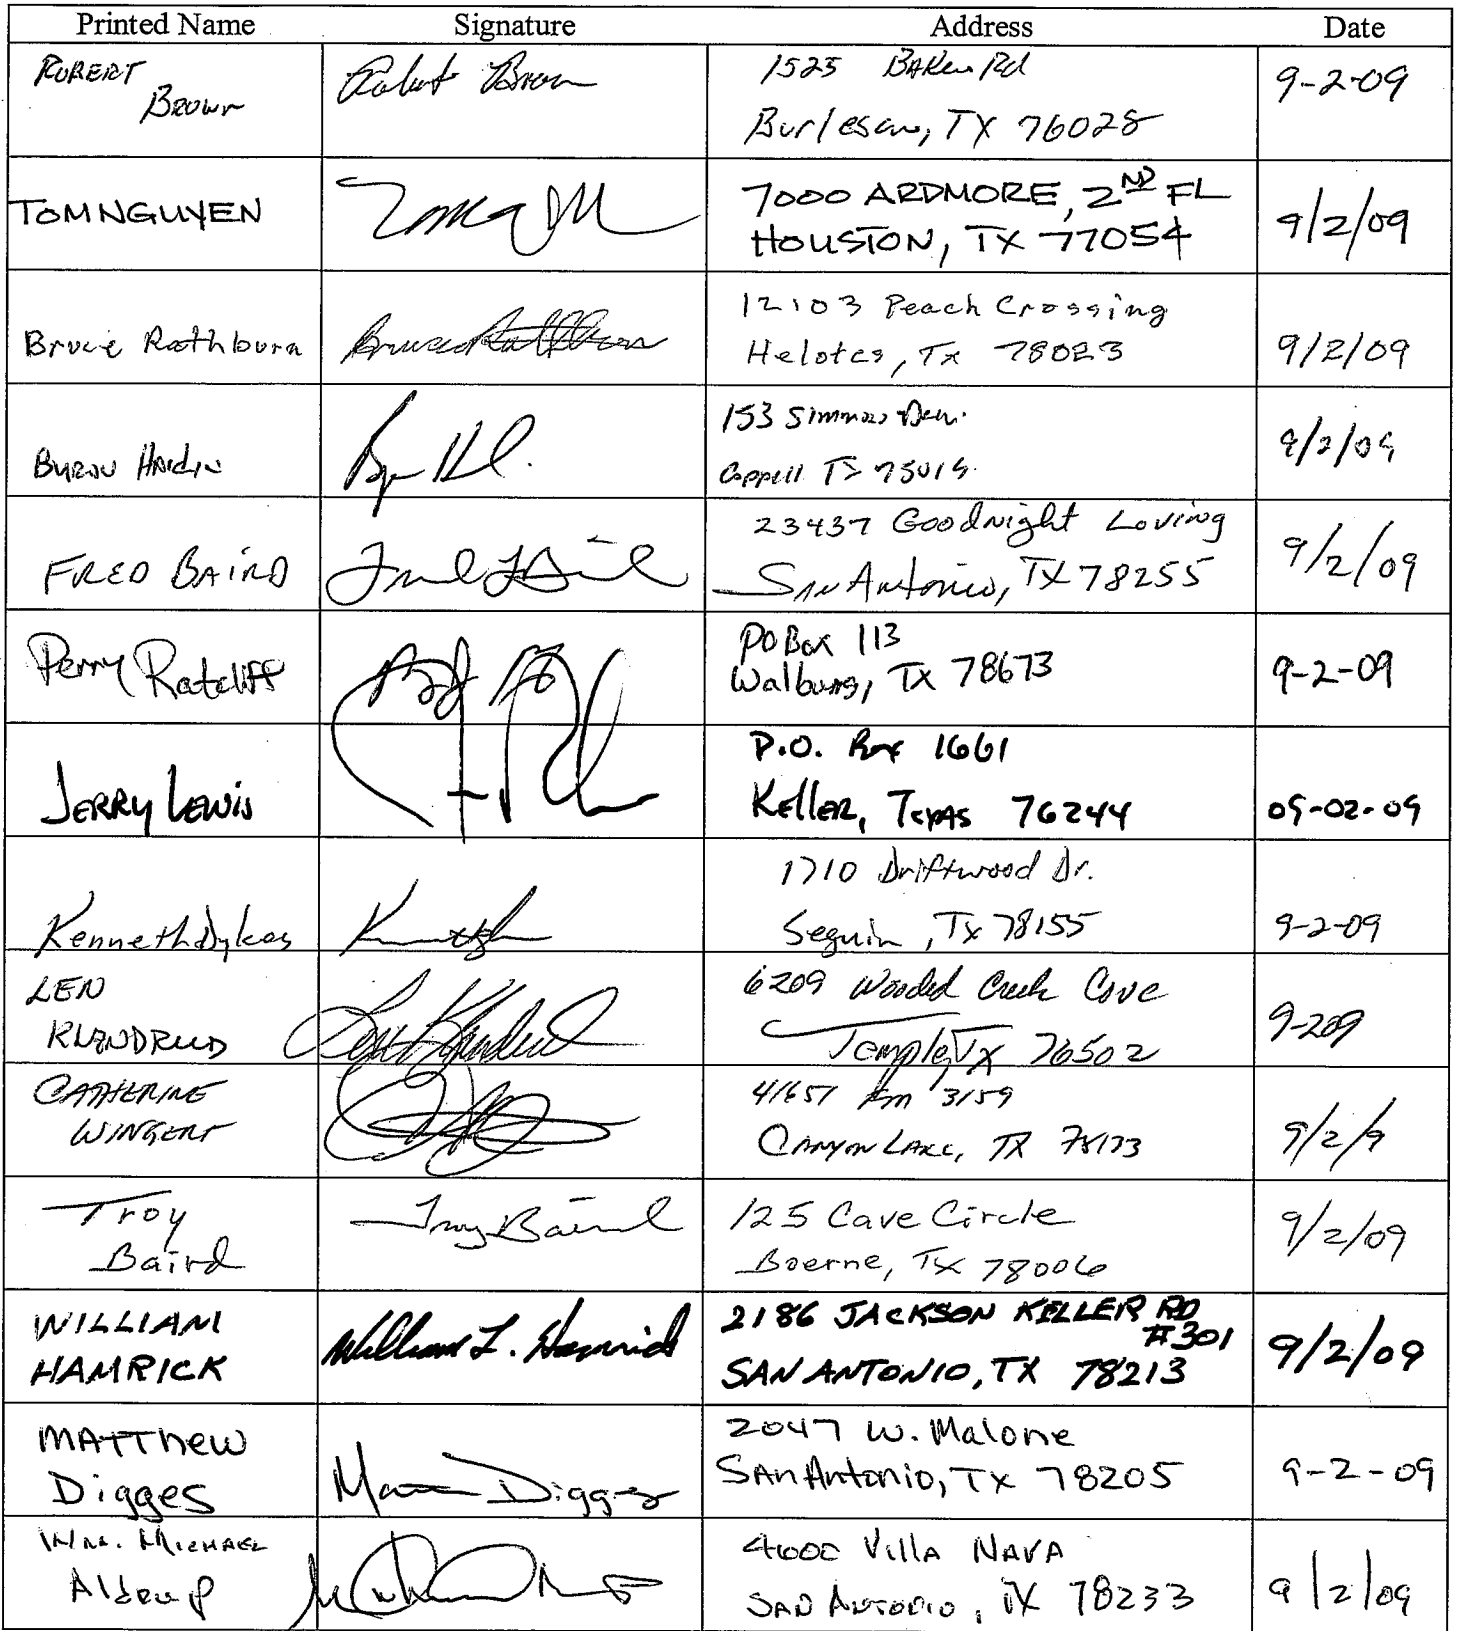 Printed Name Signature Address Date
ROBERT
BROWN
Robert Brown
1525 Baker Rd
Burleson, TX 76028
9-2-09
TOM NGUYEN
7000 ARDMORE, 2ND FL
HOUSTON, TX 77054
9/2/09
Bruce Rathburn
Bruce Rathburn
12103 Peach Crossing
Helotes, Tx 78023
9/2/09
Byron Hardin
153 Simmons
Coppell TX 75019
9/2/09
FRED BAIRD
23437 Goodnight Loving
San Antonio, TX 78255
9/2/09
Perry Ratcliff
PO Box 113
Walburg, TX 78673
9-2-09
JERRY LEWIS
P.O. Box 1661
KELLER, TEXAS 76244
09-02-09
Kenneth Dykes
1710 Driftwood Dr.
Seguin, Tx 78155
9-2-09
LEN
6209 Wooded Creek Cove
Temple, TX 76502
9-209
CATHERINE
WINGERT
41651 Fm 3159
CANYON LAKE, TX 78133
9/2/9
Troy
Baird
Troy Baird
125 Cave Circle
Boerne, TX 78006
9/2/09
WILLIAM
HAMRICK
William L. Hamrick
2186 JACKSON KELLER RD
#301
SAN ANTONIO, TX 78213
9/2/09
MATThew
Digges
Matt Digges
2047 W. Malone
SAn Antonio, TX 78205
9-2-09
Wm. MICHAEL
Alderup
4600 VillA NAVA
SAN ANTONIO, TX 78233
9/2/09